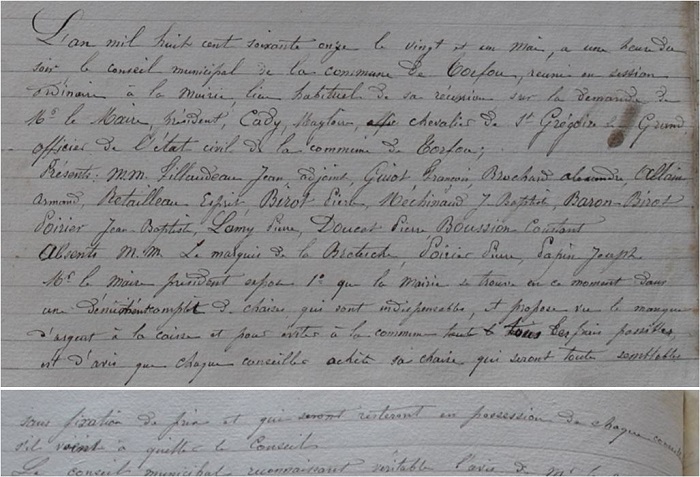 L'an mil huit cent soixante onze le vingt et un mai, a une heure du
soir le conseil municipal de la commune de Torfou, réuni en session
ordinaire à la Mairie, lieu habituel de sa réunion sur la demande de
Mr le Maire, Président, Cady, chevalier de St Grégoire le Grand
officier de l'état civil de la commune de Torfou;
Présents: M.M. Fillaudeau Jean adjoint, Guiot François, Brochard alexandre, Allain
armand, Retailleau Esprit, Birot Pierre, Méchinaud J. Baptist, Baron Birot
Poirier Jean Baptist, Lamy Pierre, Doucet Pierre Boussion Constant
Absents M.M. Le marquis de la Bretesche, Poirier Pierre, Papin Joseph
Mr le maire président expose 1° que la Mairie se trouve en ce moment dans
une complèt de chaises, qui sont indispensables, et propose vu le manque
d'argent à la caisse et pour eviter à la commune tous les frais possibles,
est d'avis que chaque conseiller achète sa chaise qui seront toute semblables
sans fixation de prix et qui seront resteront en possession de chaque
s'il vient à quitter le Conseil
Le conseil municipal reconnaissant véritable l'avis de Mr le